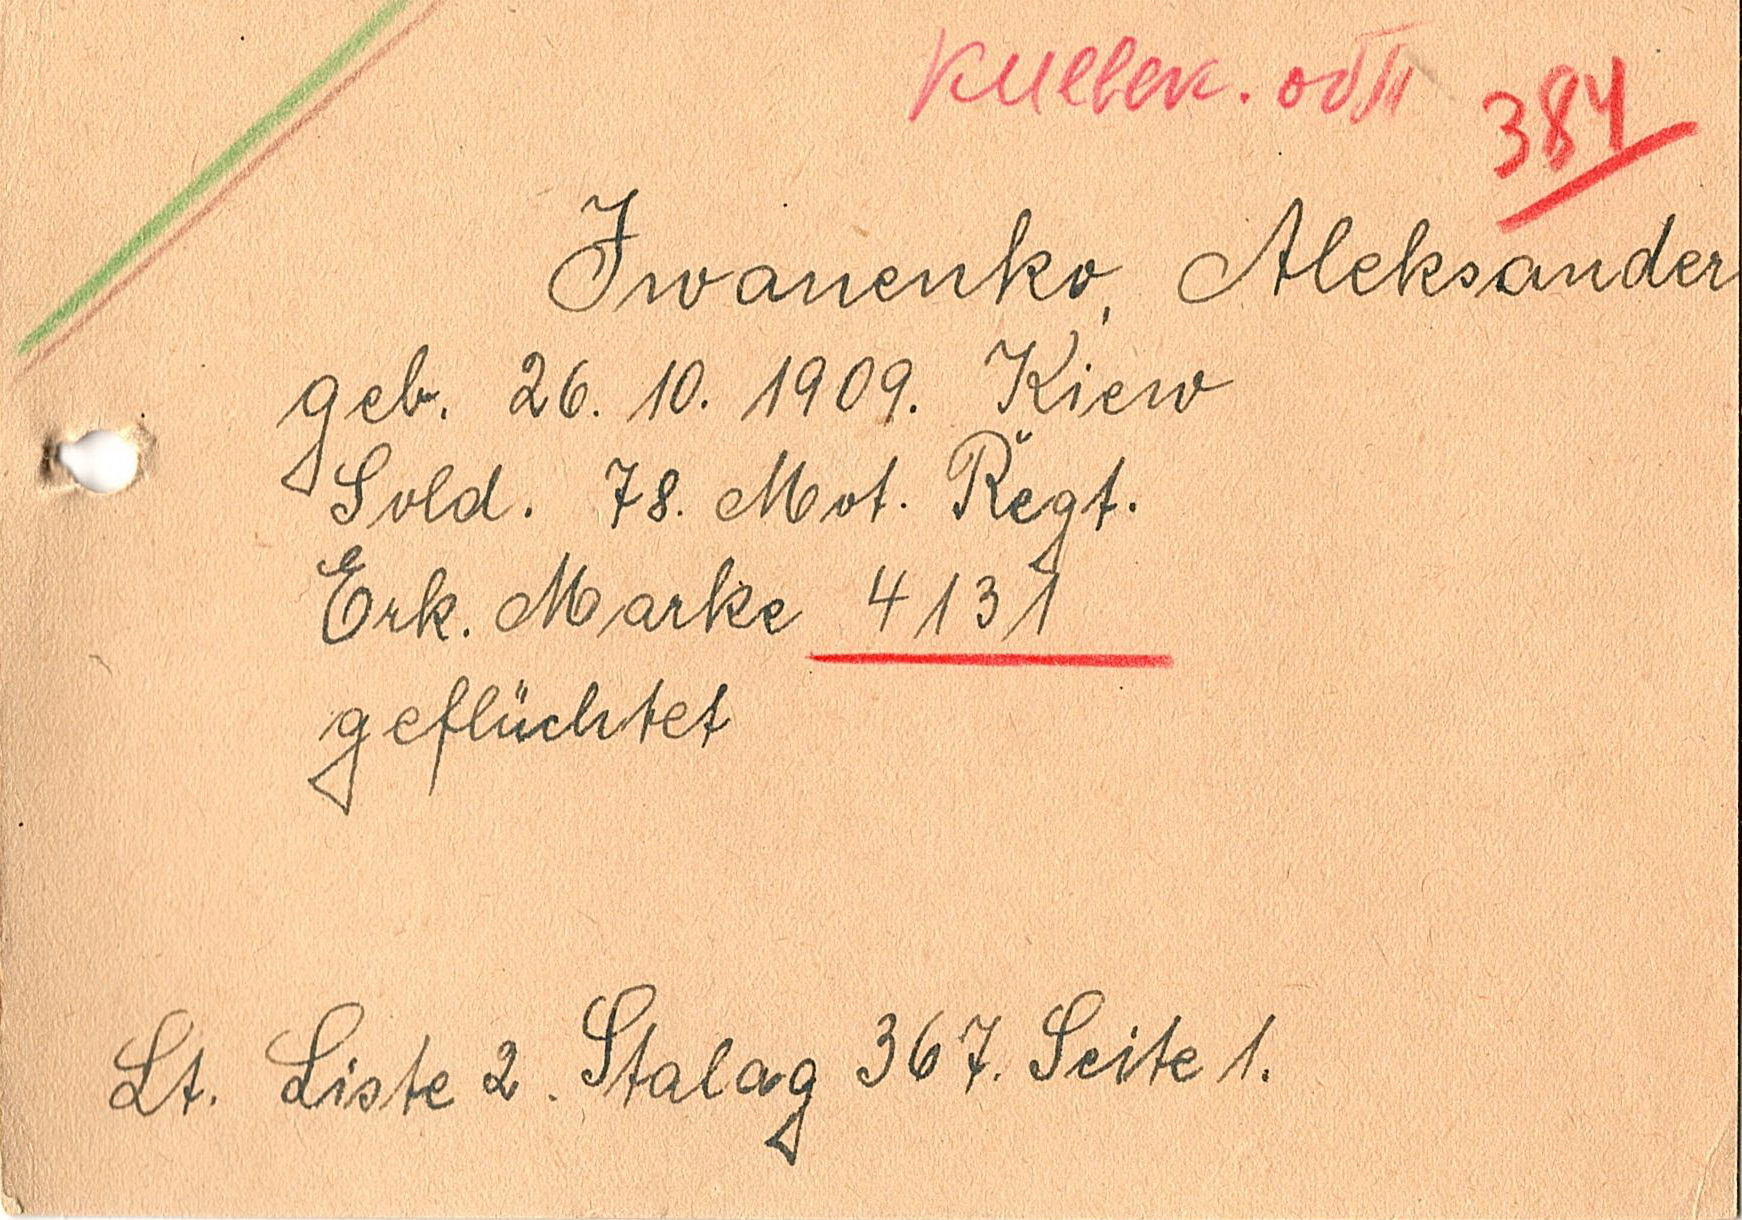 Киевск. обл 384
Iwanenko, Aleksander
geb. 26. 10. 1909. Kiew
Sold. 78. Mot. Regt.
Erk. Marke 4131
geflüchtet
Lt. Liste 2. Stalag 367. Seite 1.